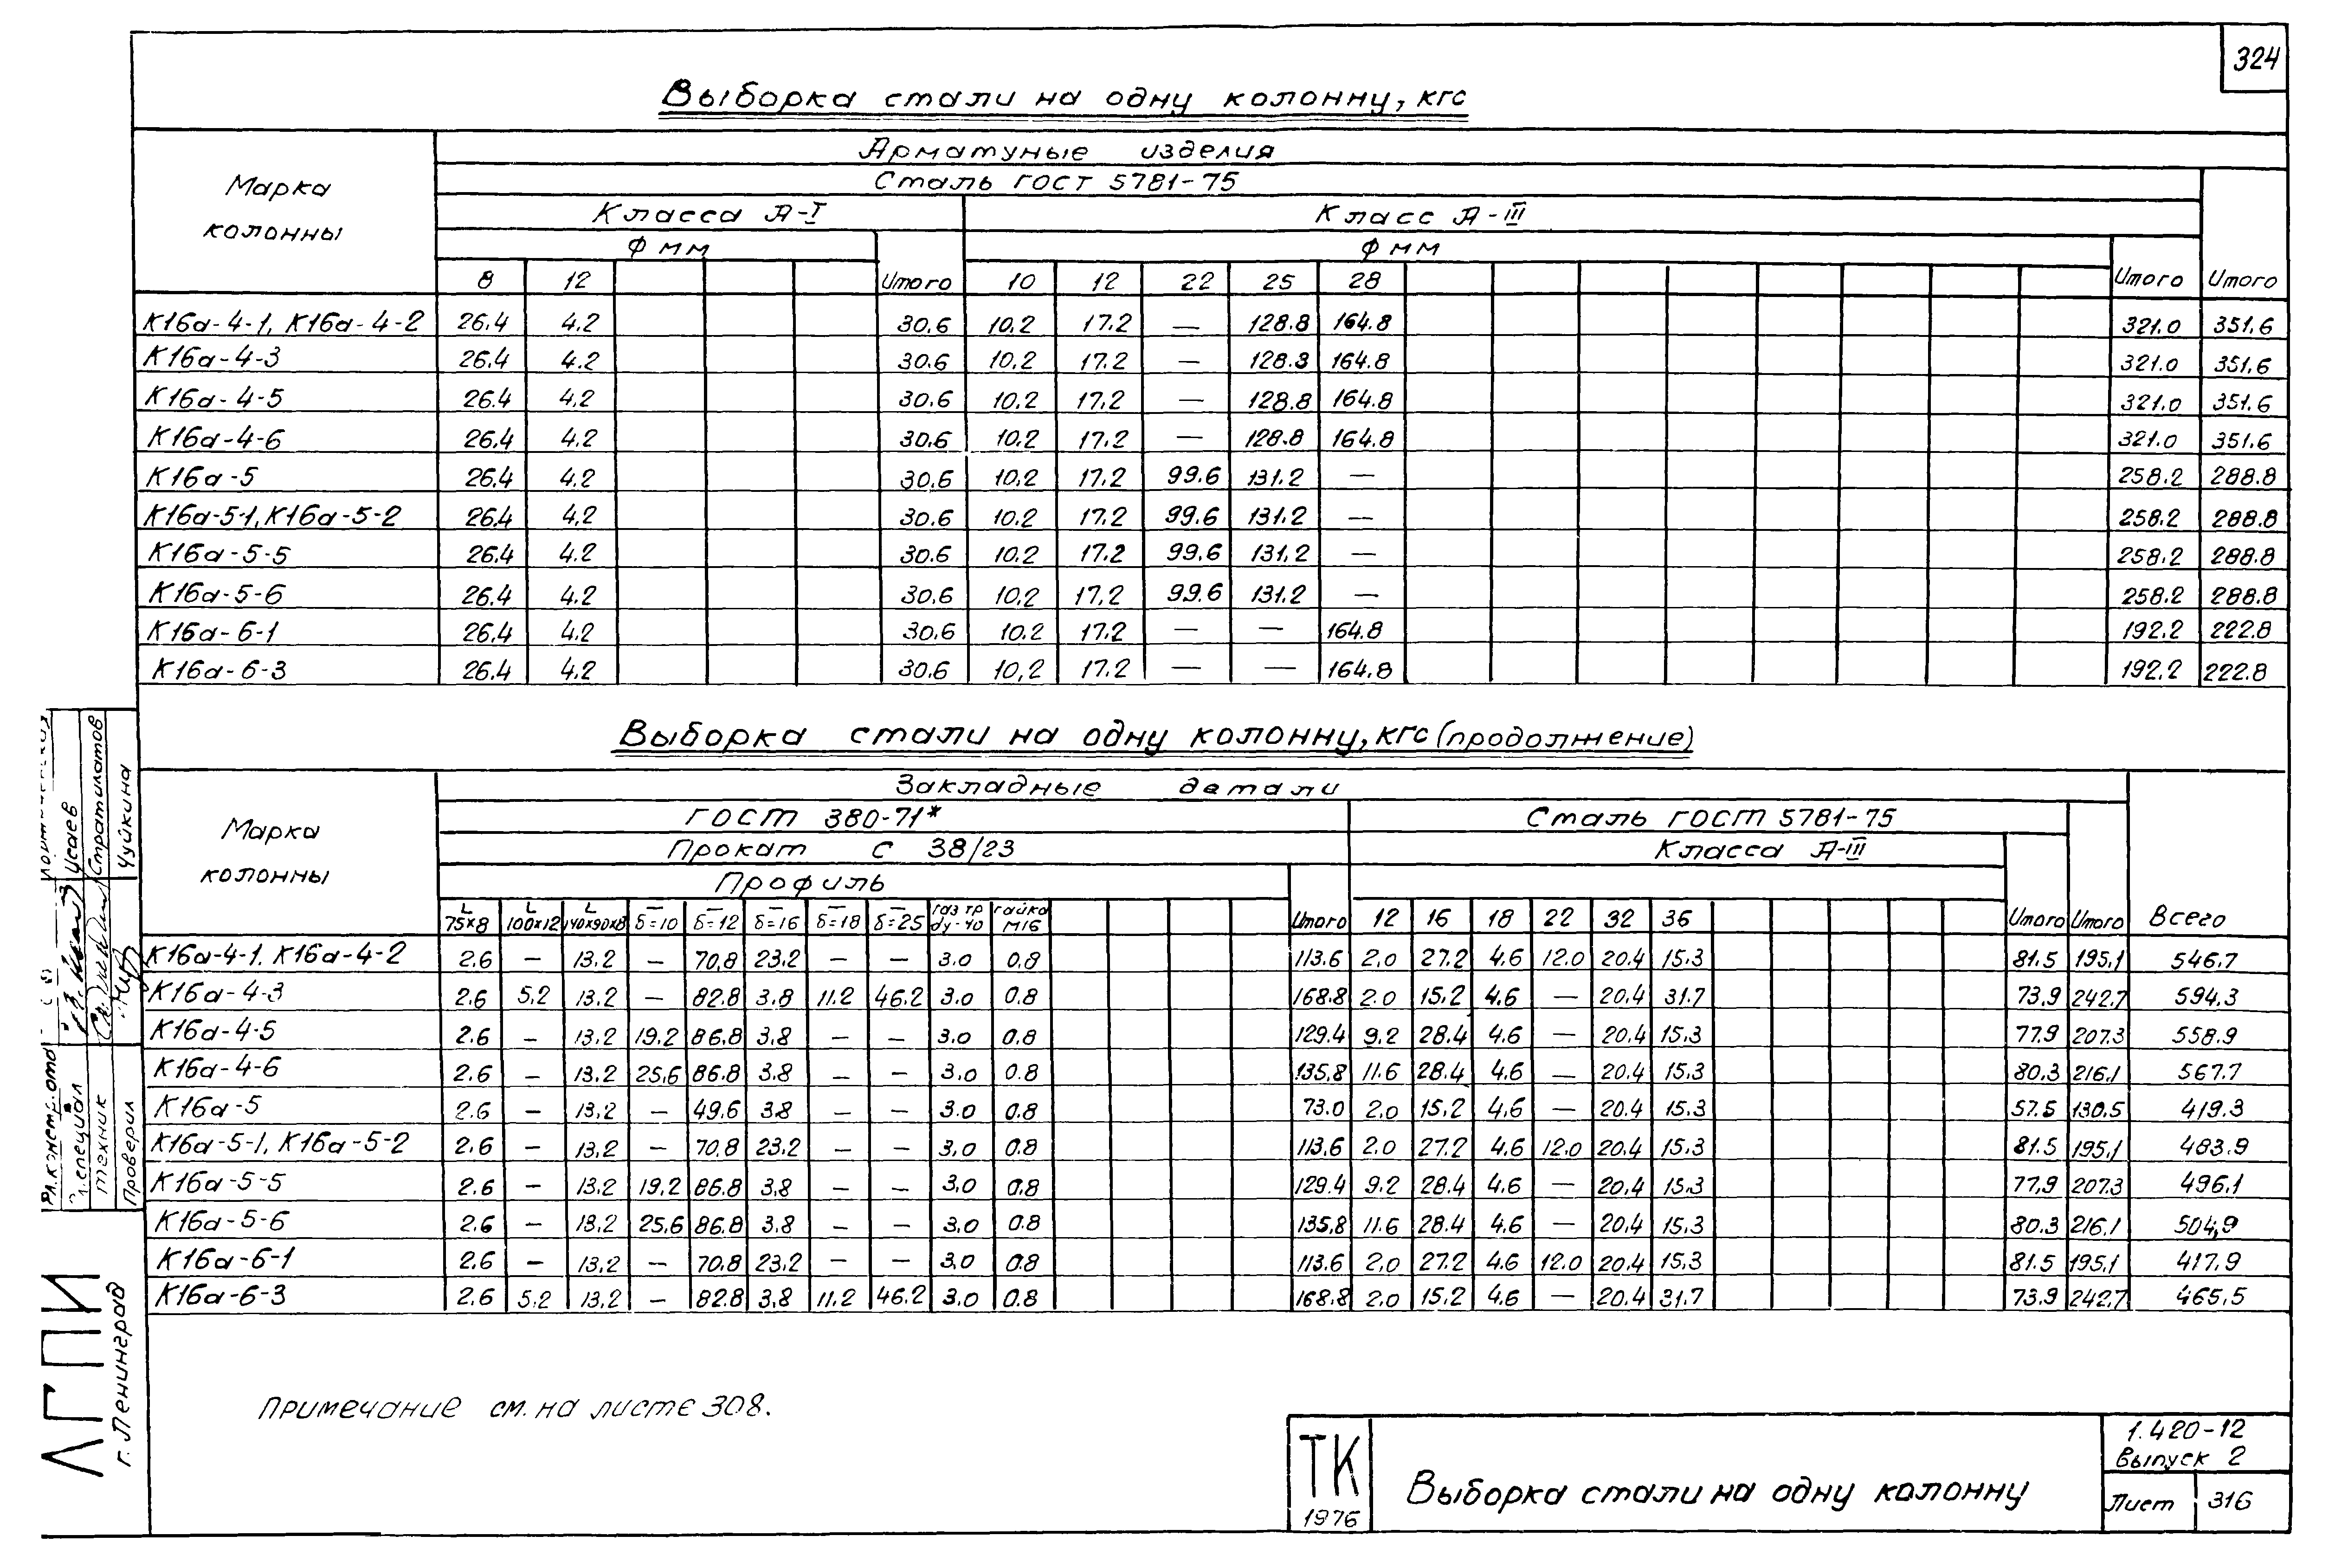 324
Выборка стали на одну колонну, кгс
Марка колонны
Арматуные изделия
Сталь ГОСТ 5781-75
Класса А-I Класс А-III
Ф мм Ф мм
8 12 Итого 10 12 22 25 28 Итого Итого
К16а-4-1, К16а-4-2 26.4 4.2 30.6 10.2 17.2 — 128.8 164.8 321.0 351.6
К16а-4-3 26.4 4.2 30.6 10.2 17.2 — 128.8 164.8 321.0 351.6
К16а-4-5 26.4 4.2 30.6 10.2 17.2 — 128.8 164.8 321.0 351.6
К16а-4-6 26.4 4.2 30.6 10.2 17.2 — 128.8 164.8 321.0 351.6
К16а-5 26.4 4.2 30.6 10.2 17.2 99.6 131.2 — 258.2 288.8
К16а-5-1, К16а-5-2 26.4 4.2 30.6 10.2 17.2 99.6 131.2 — 258.2 288.8
К16а-5-5 26.4 4.2 30.6 10.2 17.2 99.6 131.2 — 258.2 288.8
К16а-5-6 26.4 4.2 30.6 10.2 17.2 99.6 131.2 — 258.2 288.8
К16а-6-1 26.4 4.2 30.6 10.2 17.2 — — 164.8 192.2 222.8
К16а-6-3 26.4 4.2 30.6 10,2 17.2 — — 164.8 192.2 222.8
Выборка стали на одну колонну, кгс (продолжение)
Марка колонны
Закладные детали
ГОСТ 380-71* Сталь ГОСТ 5781-75
Прокат С 38/23 Класса А-III
Профиль
L 75×8 L 100×12 L 140×90×8 — δ=10 — δ=12 — δ=16 — δ=18 — δ=25 газ тр dу-40 гайка М16 Итого 12 16 18 22 32 36 Итого Итого Всего
К16а-4-1, К16а-4-2 2.6 — 13.2 — 70.8 23.2 — — 3.0 0.8 113.6 2.0 27.2 4.6 12.0 20.4 15.3 81.5 195.1 546.7
К16а-4-3 2.6 5.2 13.2 — 82.8 3.8 11.2 46.2 3.0 0.8 168.8 2.0 15.2 4.6 — 20.4 31.7 73.9 242.7 594.3
К16а-4-5 2.6 — 13.2 19.2 86.8 3.8 — — 3.0 0.8 129.4 9.2 28.4 4.6 — 20.4 15.3 77.9 207.3 558.9
К16а-4-6 2.6 — 13.2 25.6 86.8 3.8 — — 3.0 0.8 135.8 11.6 28.4 4.6 — 20.4 15.3 80.3 216.1 567.7
К16а-5 2.6 — 13.2 — 49.6 3.8 — — 3.0 0.8 73.0 2.0 15.2 4.6 — 20.4 15.3 57.5 130.5 419.3
К16а-5-1, К16а-5-2 2.6 — 13.2 — 70.8 23.2 — — 3.0 0.8 113.6 2.0 27.2 4.6 12.0 20.4 15.3 81.5 195.1 483.9
К16а-5-5 2.6 — 13.2 19.2 86.8 3.8 — — 3.0 0.8 129.4 9.2 28.4 4.6 — 20.4 15.3 77.9 207.3 496.1
К16а-5-6 2.6 — 13.2 25.6 86.8 3.8 — — 3.0 0.8 135.8 11.6 28.4 4.6 — 20.4 15.3 80.3 216.1 504,9
К16а-6-1 2.6 — 13.2 — 70.8 23.2 — — 3.0 0.8 113.6 2.0 27.2 4.6 12.0 20.4 15.3 81.5 195.1 417.9
К16а-6-3 2.6 5.2 13.2 — 82.8 3.8 11.2 46.2 3.0 0.8 168.8 2.0 15.2 4.6 — 20.4 31.7 73.9 242.7 465.5
Примечание см. на листе 308.
ТК
1976
Выборка стали на одну колонну
1.420-12
Выпуск 2
Лист 316
Исаев
техник Стратилатов
Проверил Чуйкина
ЛГПИ
г. Ленинград